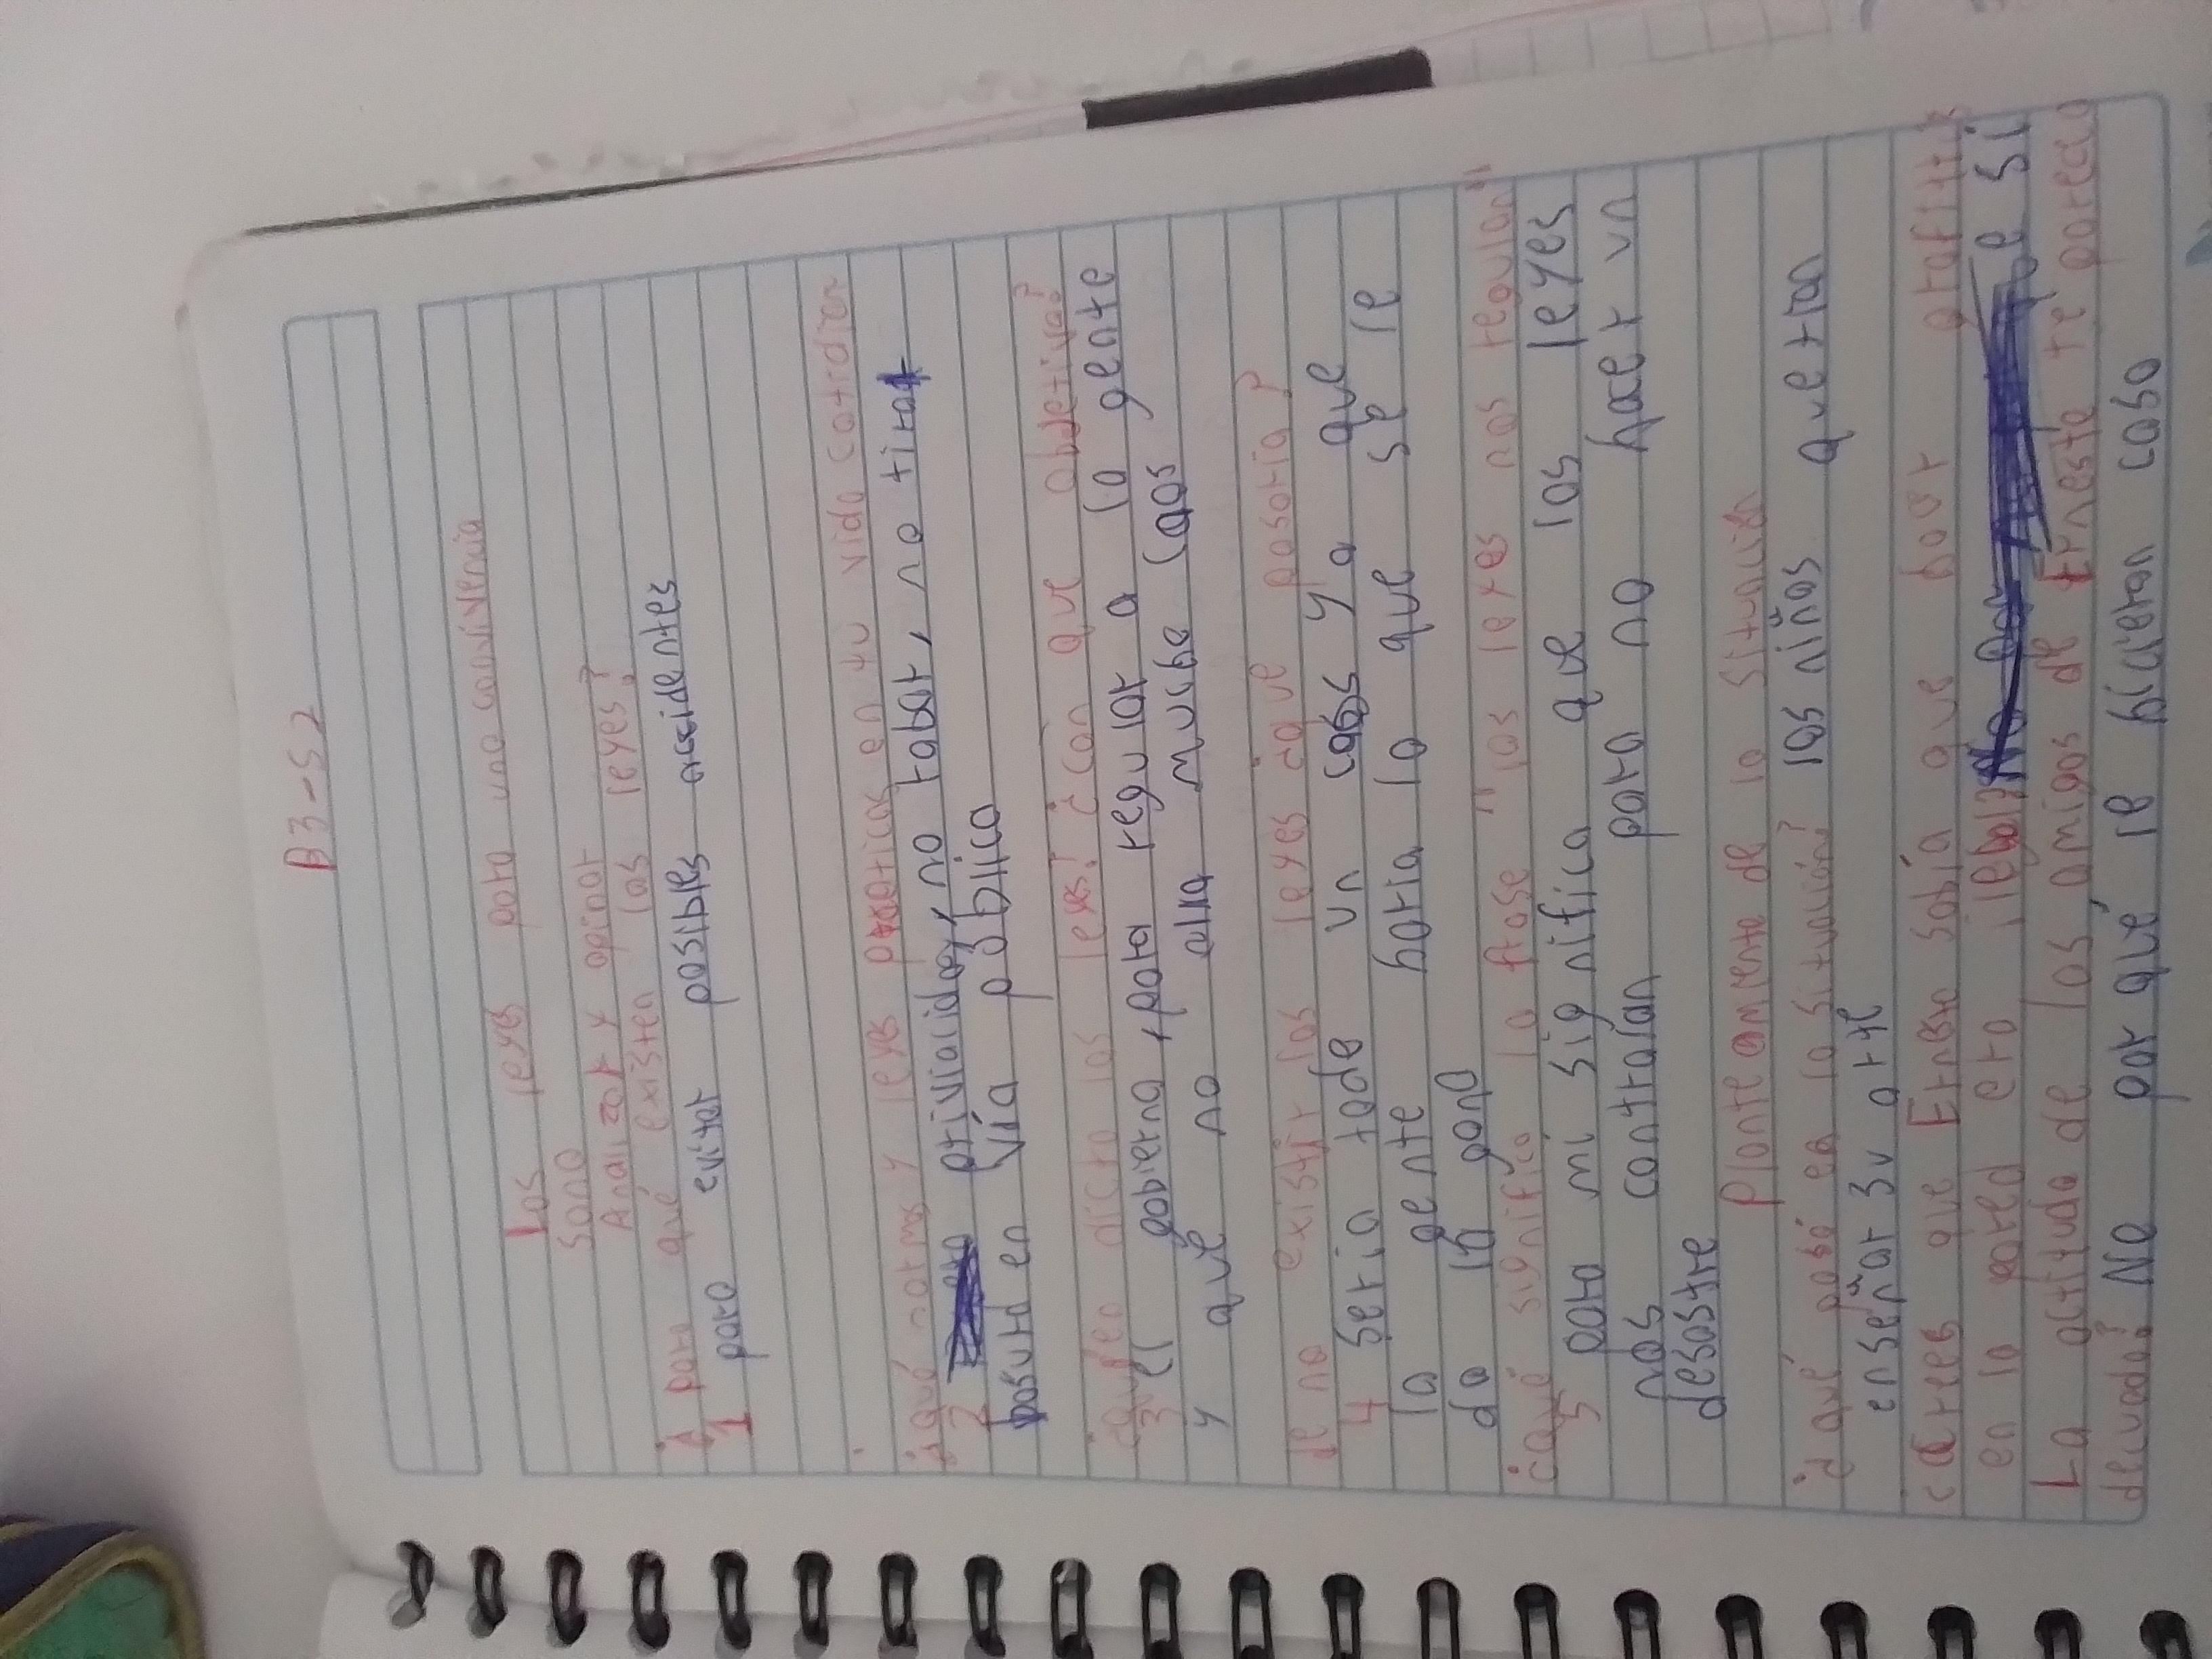 B3-S2
Las leyes para una convivencia
sana
Analizar y opinar
¿para qué existen las leyes?
1 para evitar posibles accidentes
¿qué normas y leyes practicas en tu vida cotidian
2 privacidad, no robar, no tirar
basura en vía pública
¿quién dicta las leyes? ¿con que objetivo?
3 el gobierno, para regular a la gente
y que no alla musho caos
de no existir las leyes ¿que pasaria?
4 seria tode un caos y a que
la gente haria lo que se le
da la gana
¿qué significa la frase "las leyes nos regulan"
5 para mi significa que las leyes
nos controlan para no hacer un
desastre
Planteamiento de la situación
¿qué pasó en la situación? los niños querian
enseñar su arte
¿crees que Ernesto sabía que hacer grafitis
en la pared era ilegal? si
La actitud de los amigos de Ernesto te pareció
decuada? No por qué le hicieron caso